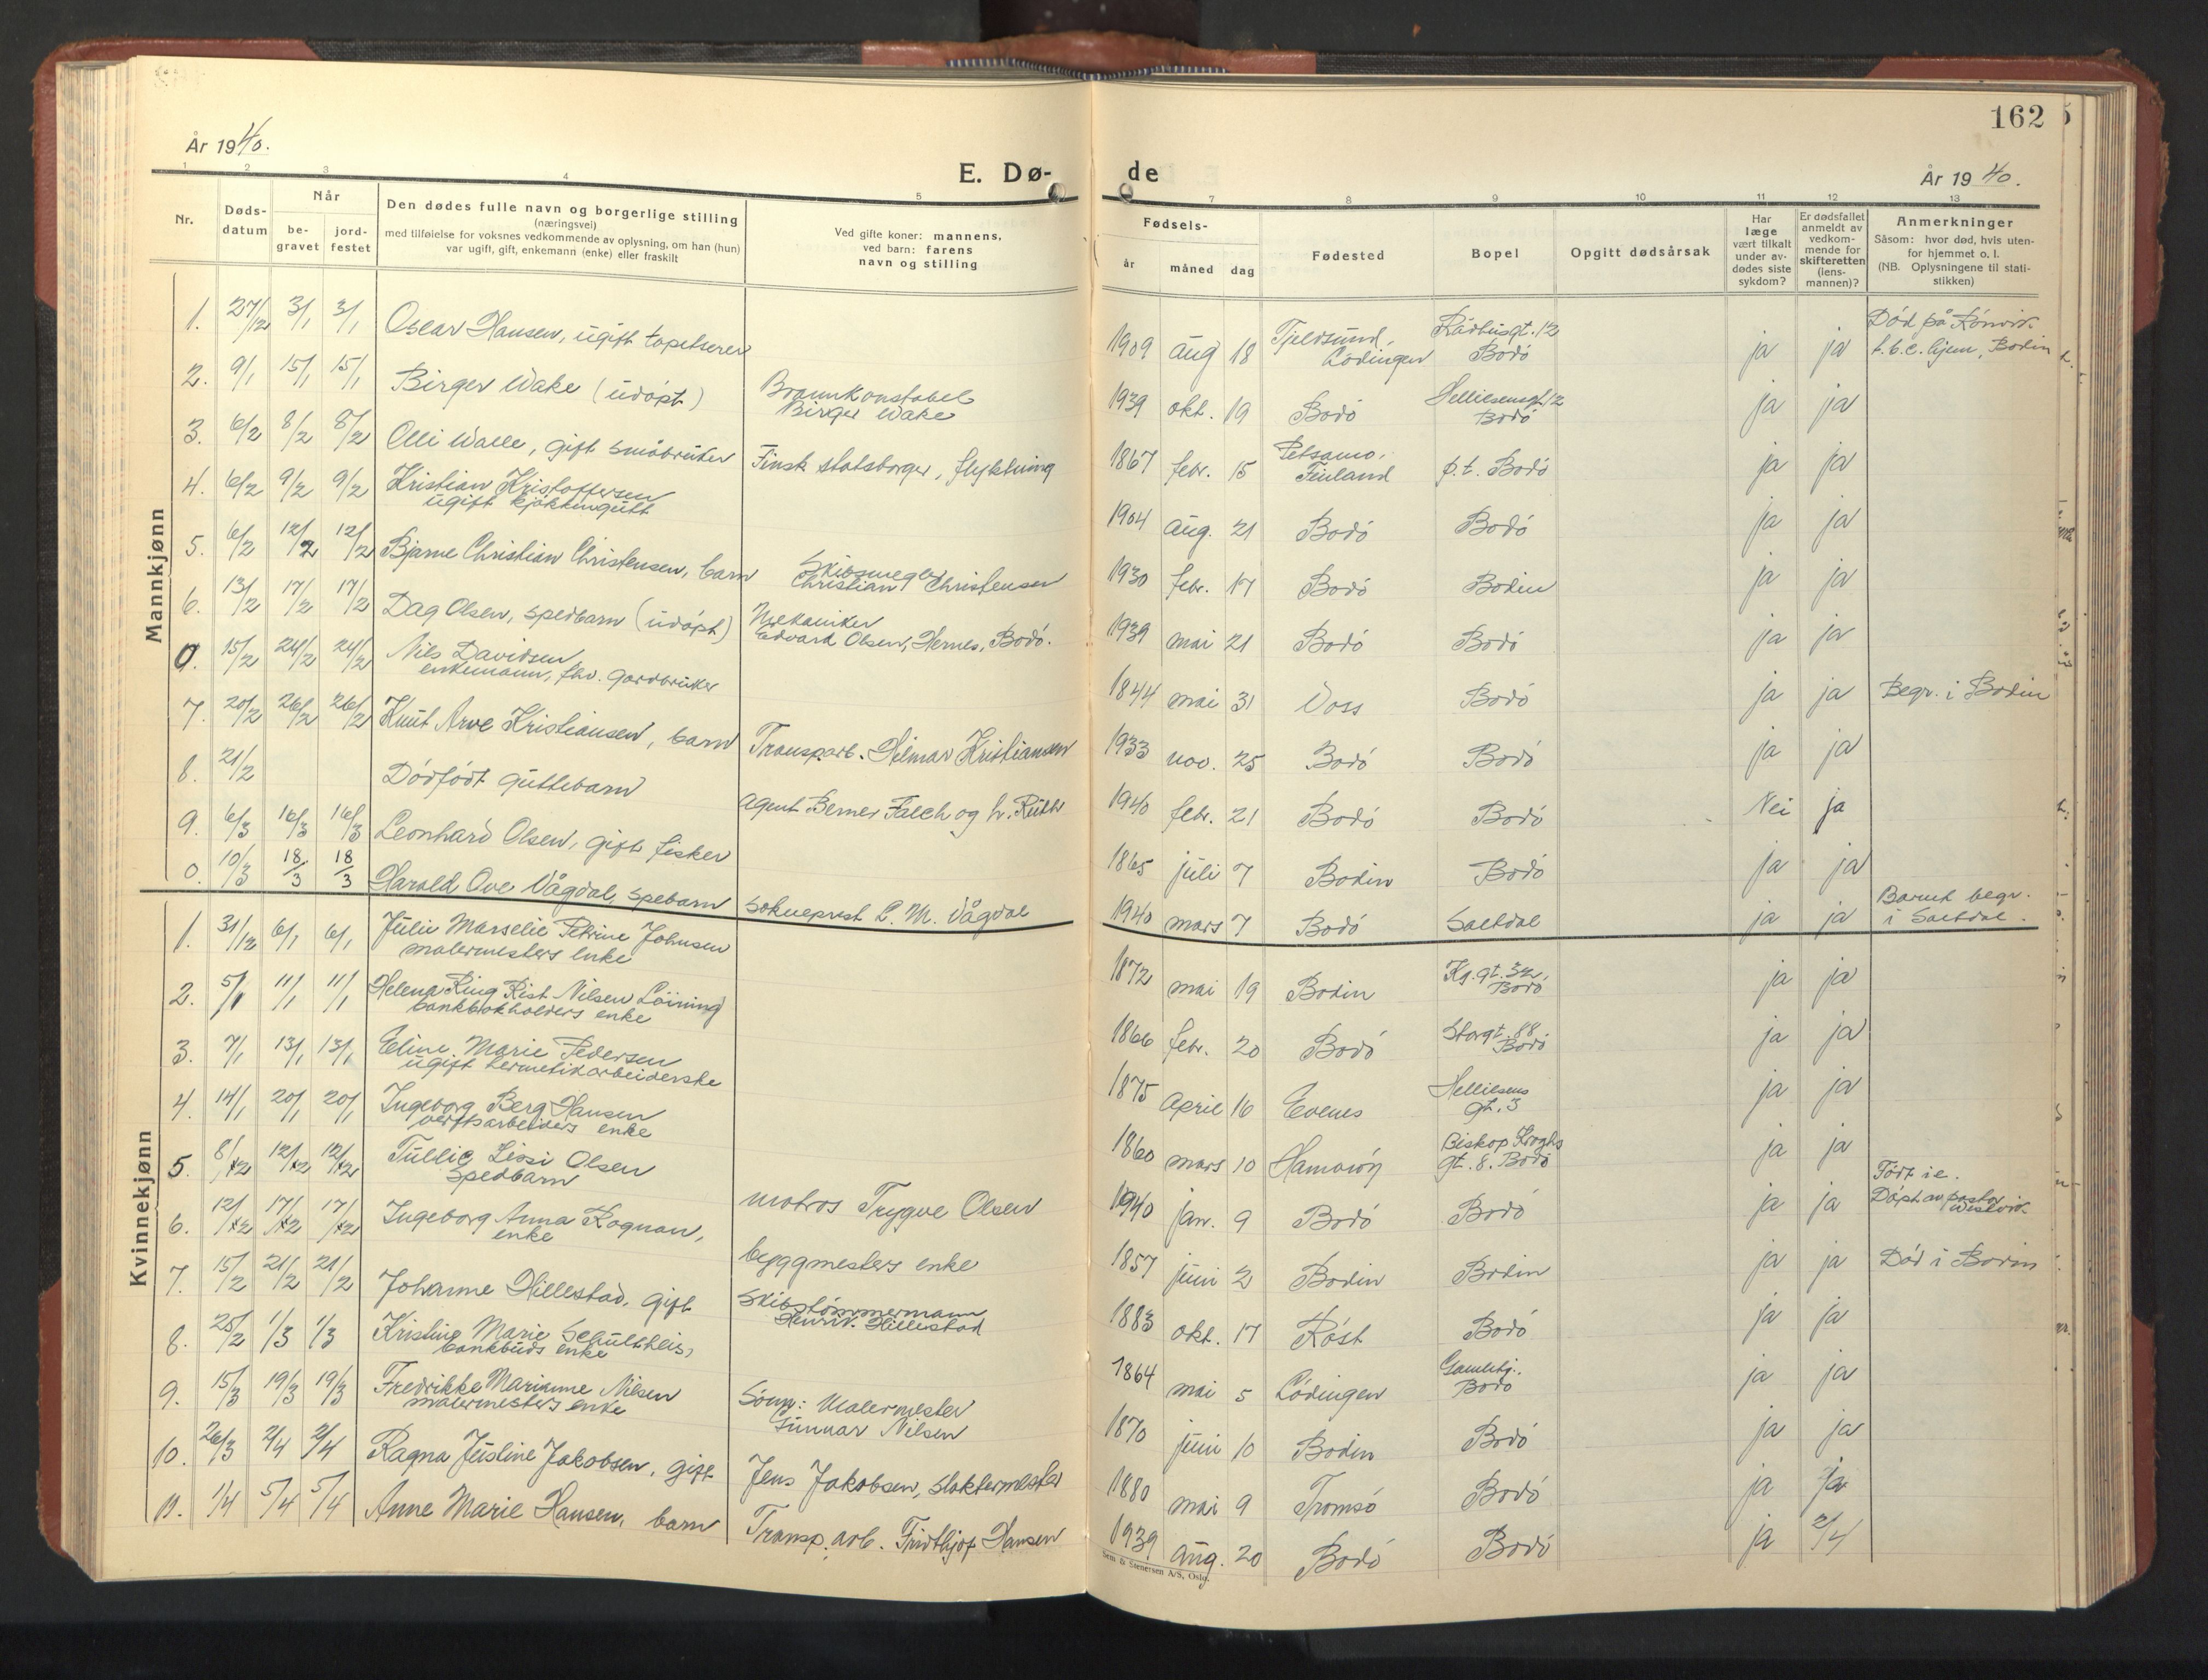 162
År 1940.
E. Dø-
de
År 1940.
1 2 3 4 5
7 8 9 10 11 12 13
Nr.
Døds-
datum
Når
be-
gravet
jord-
festet
Den dødes fulle navn og borgerlige stilling
(næringsvei)
med tilføielse for voksnes vedkommende av oplysning, om han (hun)
var ugift, gift, enkemann (enke) eller fraskilt
Ved gifte koner: mannens,
ved barn: farens
navn og stilling
Fødsels-
år måned dag
Fødested
Bopel
Opgitt dødsårsak
Har
læge
vært tilkalt
under av-
dødes siste
sykdom?
Er dødsfallet
anmeldt av
vedkom-
mende for
skifteretten
(lens-
mannen)?
Anmerkninger
Såsom: hvor død, hvis uten-
for hjemmet o. l.
(NB. Oplysningene til stati-
stikken)
Mannkjønn
1. 27/12 3/1 3/1 Oscar Hansen, ugift tapetserer
1909 aug 18 Tjeldsund, Lødingen Rådhusgt. 12 Bodø ja ja Død på Rønvik t.b.c. hjem, Bodin
2. 9/1 15/1 15/1 Birger Wake (udøpt) Brannkonstabel Birger Wake
1939 okt. 19 Bodø Hellilsensgt 12 Bodø ja ja
3. 6/2 8/2 8/2 Olli Walle, gift småbruker Finsk statsborger, flyktning
1867 febr. 15 Petsamo, Finland p.t. Bodø ja ja
4. 6/2 9/2 9/2 Kristian Kristoffersen ugift kjøkkengutt
1904 aug. 21 Bodø Bodø ja ja
5. 6/2 12/2 12/2 Bjarne Christian Christensen, barn Skibsmegler Christian Christensen
1930 febr. 17 Bodø Bodin ja ja
6. 13/2 17/2 17/2 Dag Olsen, spedbarn (udøpt) Mekaniker Edvard Olsen, Hernes, Bodø.
1939 mai 21 Bodø Bodø ja ja
0. 15/2 24/2 24/2 Nils Davidsen enkemann, fhv. gardbruker
1844 mai 31 Voss Bodø ja ja Begr. i Bodin
7. 20/2 26/2 26/2 Knut Arve Kristiansen, barn Transp.arb. Hilmar Kristiansen
1933 nov. 25 Bodø Bodø ja ja
8. 21/2 Dødfødt guttebarn Agent Berner Falch og h. Ruth
1940 febr. 21 Bodø Bodø Nei ja
9. 6/3 16/3 16/3 Leonhard Olsen, gift fisker
1865 juli 7 Bodin Bodø ja ja
0. 10/3 18/3 18/3 Harald Ove Vågdal, spebarn Sokneprest L. M. Vågdal
1940 mars 7 Bodø Saltdal ja ja Barnet begr. i Saltdal.
Kvinnekjønn
1. 31/12 6/1 6/1 Julie Marselie Petrine Johnsen malermesters enke
1872 mai 19 Bodin Kg.gt. 32, Bodø ja ja
2. 5/1 11/1 11/1 Helena Ring Rist Nilsen Løining bankbokholders enke
1866 febr. 20 Bodø Storgt. 88 Bodø ja ja
3. 7/1 13/1 13/1 Eline Marie Pedersen ugift hermetikarbeiderske
1875 April 16 Evenes Hellilsens gt. 3 ja ja
4. 14/1 20/1 20/1 Ingeborg Berg Hansen verftsarbeiders enke
1860 mars 10 Hamarøy Biskop Kroghs gt. 8. Bodø ja ja
5. 8/2 12/2 12/2 Tullie Lissi Olsen Spedbarn matros Trygve Olsen
1940 jan. 9 Bodø Bodø ja ja Født i e. Døpt av pastor
6. 12/2 17/2 17/2 Ingeborg Anna Rognan, enke byggmesters enke
1857 juni 2 Bodin Bodin ja ja Død i Bodin
7. 15/2 21/2 21/2 Johanne Hillestad, gift Skibstømmermann Henrik Hillestad
1883 okt. 17 Røst Bodø ja ja
8. 25/2 1/3 1/3 Kristine Marie Schultheis, bankbuds enke
1864 mai 5 Lødingen Gamlehj., Bodø ja ja
9. 15/3 19/3 19/3 Fredrikke Marianne Nilsen malermesters enke Sønn: Malermester Gunnar Nilsen
1870 juni 10 Bodin Bodø ja ja
10. 26/3 2/4 2/4 Ragna Justine Jakobsen, gift Jens Jakobsen, slaktermester
1880 mai 9 Tromsø Bodø ja ja
11. 1/4 5/4 5/4 Anne Marie Hansen, barn Transp. arb. Fridthjof Hansen
1939 aug. 20 Bodø Bodø ja 2/4
Sem & Stenersen A/S, Oslo.